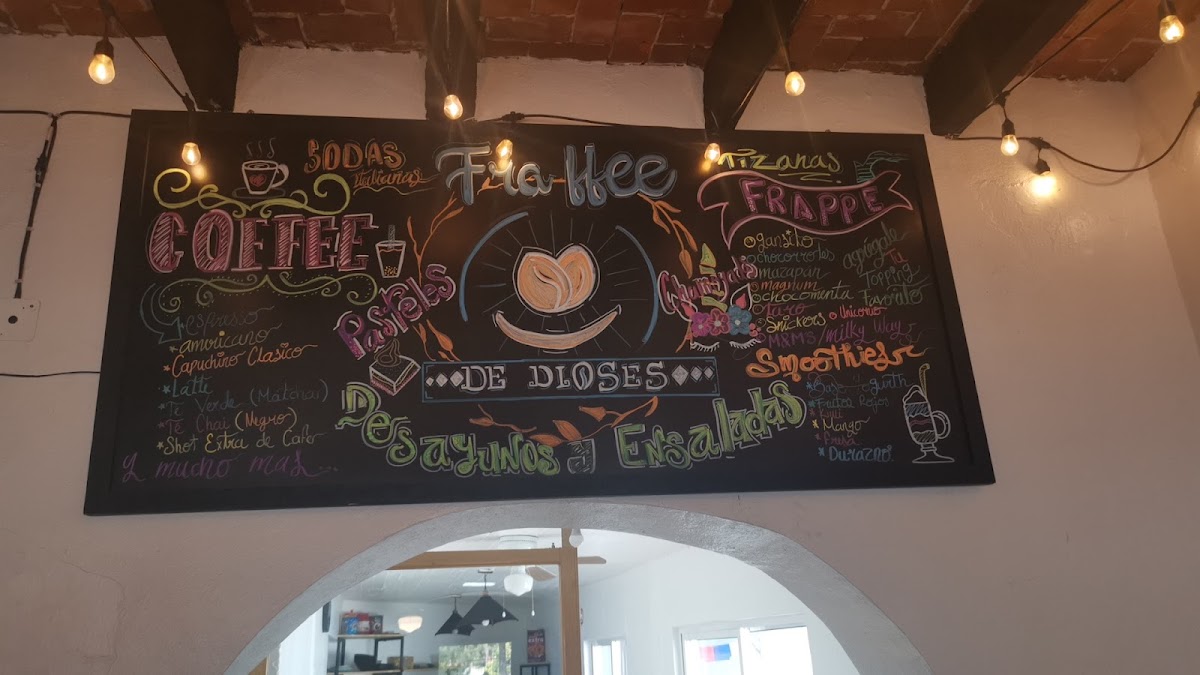 SODAS
Italianas
COFFEE
espresso
americano
*Capuchino Clasico
*Latti
*Té Verde (Matcha)
*Té Chai (Negro)
*Shot Extra de Cafe
y mucho mas...
Pasteles
Fraffee
DE DIOSES
Desayunos y Ensaladas
Tizanas
FRAPPE
gansito
chocorroles
mazapan
magnum
chocomenta
taro
Snickers
Unicornio
M&MS/milky Way
agrégale
tu
Topping
Favorito
Smoothies
*Base Yogurth
*Frutos Rojos
*Kiwi
*Mango
*Fresa
*Durazno